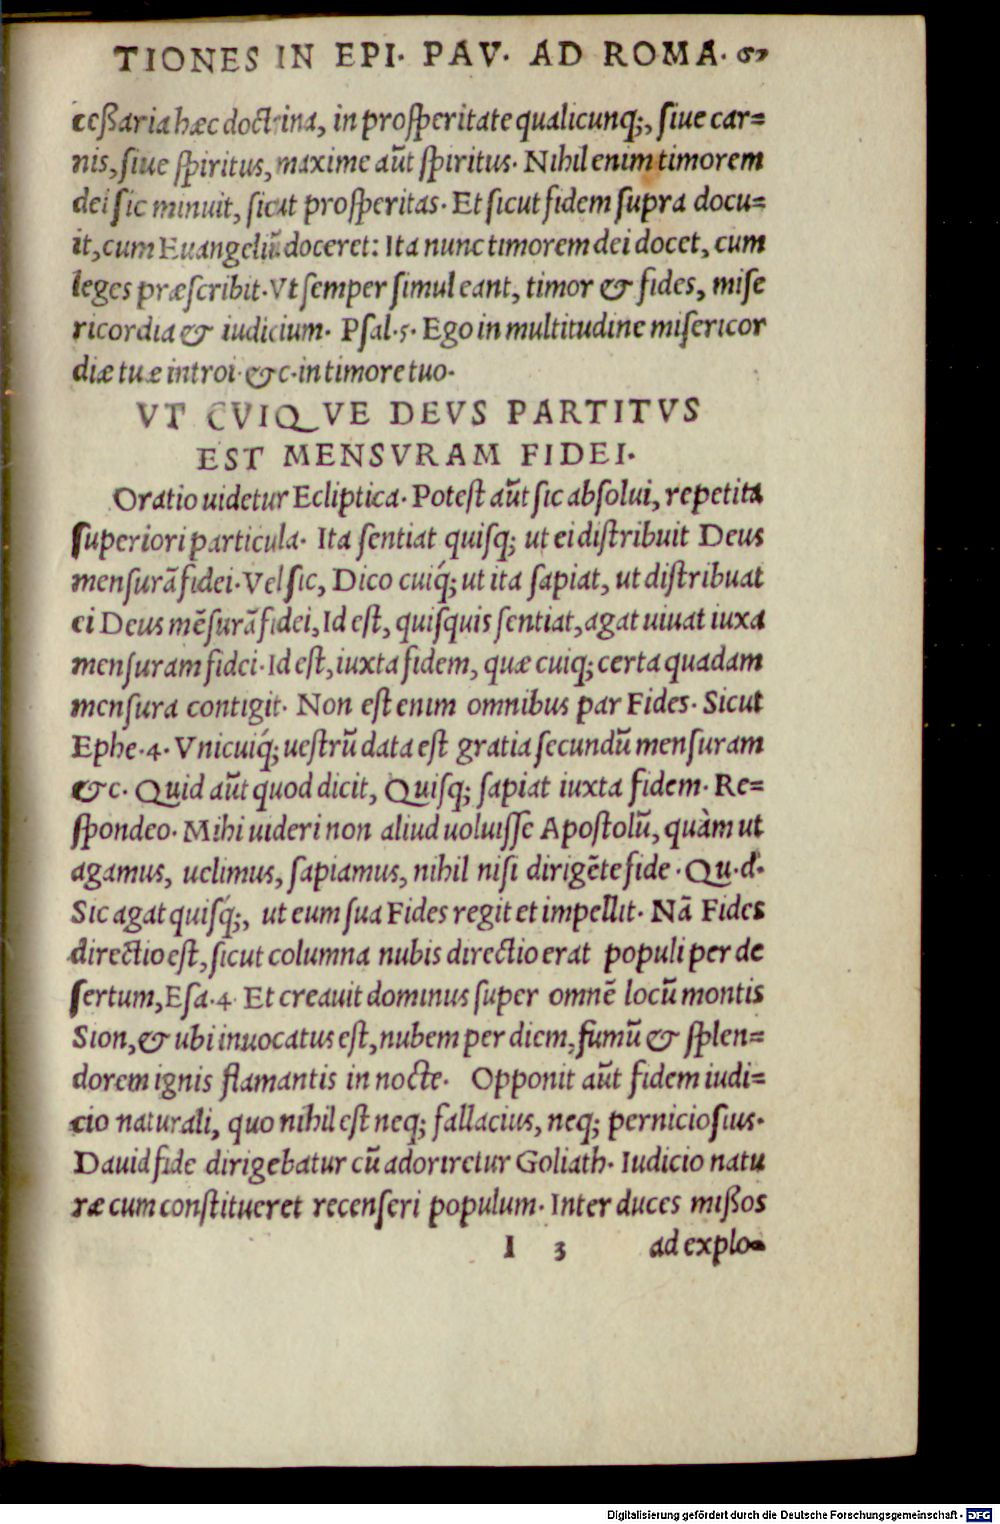 TIONES IN EPI. PAV. AD ROMA. 67
ceßaria hæc doctrina, in proſperitate qualicunq;, ſiue car=
nis, ſiue ſpiritus, maxime aūt ſpiritus. Nihil enim timorem
dei ſic minuit, ſicut proſperitas. Et ſicut fidem ſupra docu=
it, cum Euangeliū doceret: Ita nunc timorem dei docet, cum
leges præſcribit. Vt ſemper ſimul eant, timor & fides, miſe
ricordia & iudicium. Pſal. 5. Ego in multitudine miſericor
diæ tuæ introi. &c. in timore tuo.
VT CVIQVE DEVS PARTITVS
EST MENSVRAM FIDEI.
Oratio uidetur Ecliptica. Poteſt aūt ſic abſolui, repetita
ſuperiori particula. Ita ſentiat quiſq; ut ei diſtribuit Deus
menſurā fidei. Vel ſic, Dico cuiq́; ut ita ſapiat, ut diſtribuat
ei Deus mēſurā fidei, Id eſt, quiſquis ſentiat, agat uiuat iuxa
menſuram fidei. Id eſt, iuxta fidem, quæ cuiq; certa quadam
menſura contigit. Non eſt enim omnibus par Fides. Sicut
Ephe. 4. Vnicuiq́; ueſtrū data eſt gratia ſecundū menſuram
&c. Quid aūt quod dicit, Quiſq; ſapiat iuxta fidem. Re=
ſpondeo. Mihi uideri non aliud uoluiſſe Apoſtolū, quàm ut
agamus, uelimus, ſapiamus, nihil niſi dirigēte fide. Qu.d.
Sic agat quiſq́;, ut eum ſua Fides regit et impellit. Nā Fides
directio eſt, ſicut columna nubis directio erat populi per de
ſertum, Eſa. 4. Et creauit dominus ſuper omnē locū montis
Sion, & ubi inuocatus eſt, nubem per diem, fumū & ſplen=
dorem ignis flamantis in nocte. Opponit aūt fidem iudi=
cio naturali, quo nihil eſt neq; fallacius, neq; pernicioſius.
Dauid fide dirigebatur cū adoriretur Goliath. Iudicio natu
ræ cum conſtitueret recenſeri populum. Inter duces mißos
I 3 ad explo=
Digitalisierung gefördert durch die Deutsche Forschungsgemeinschaft - DFG